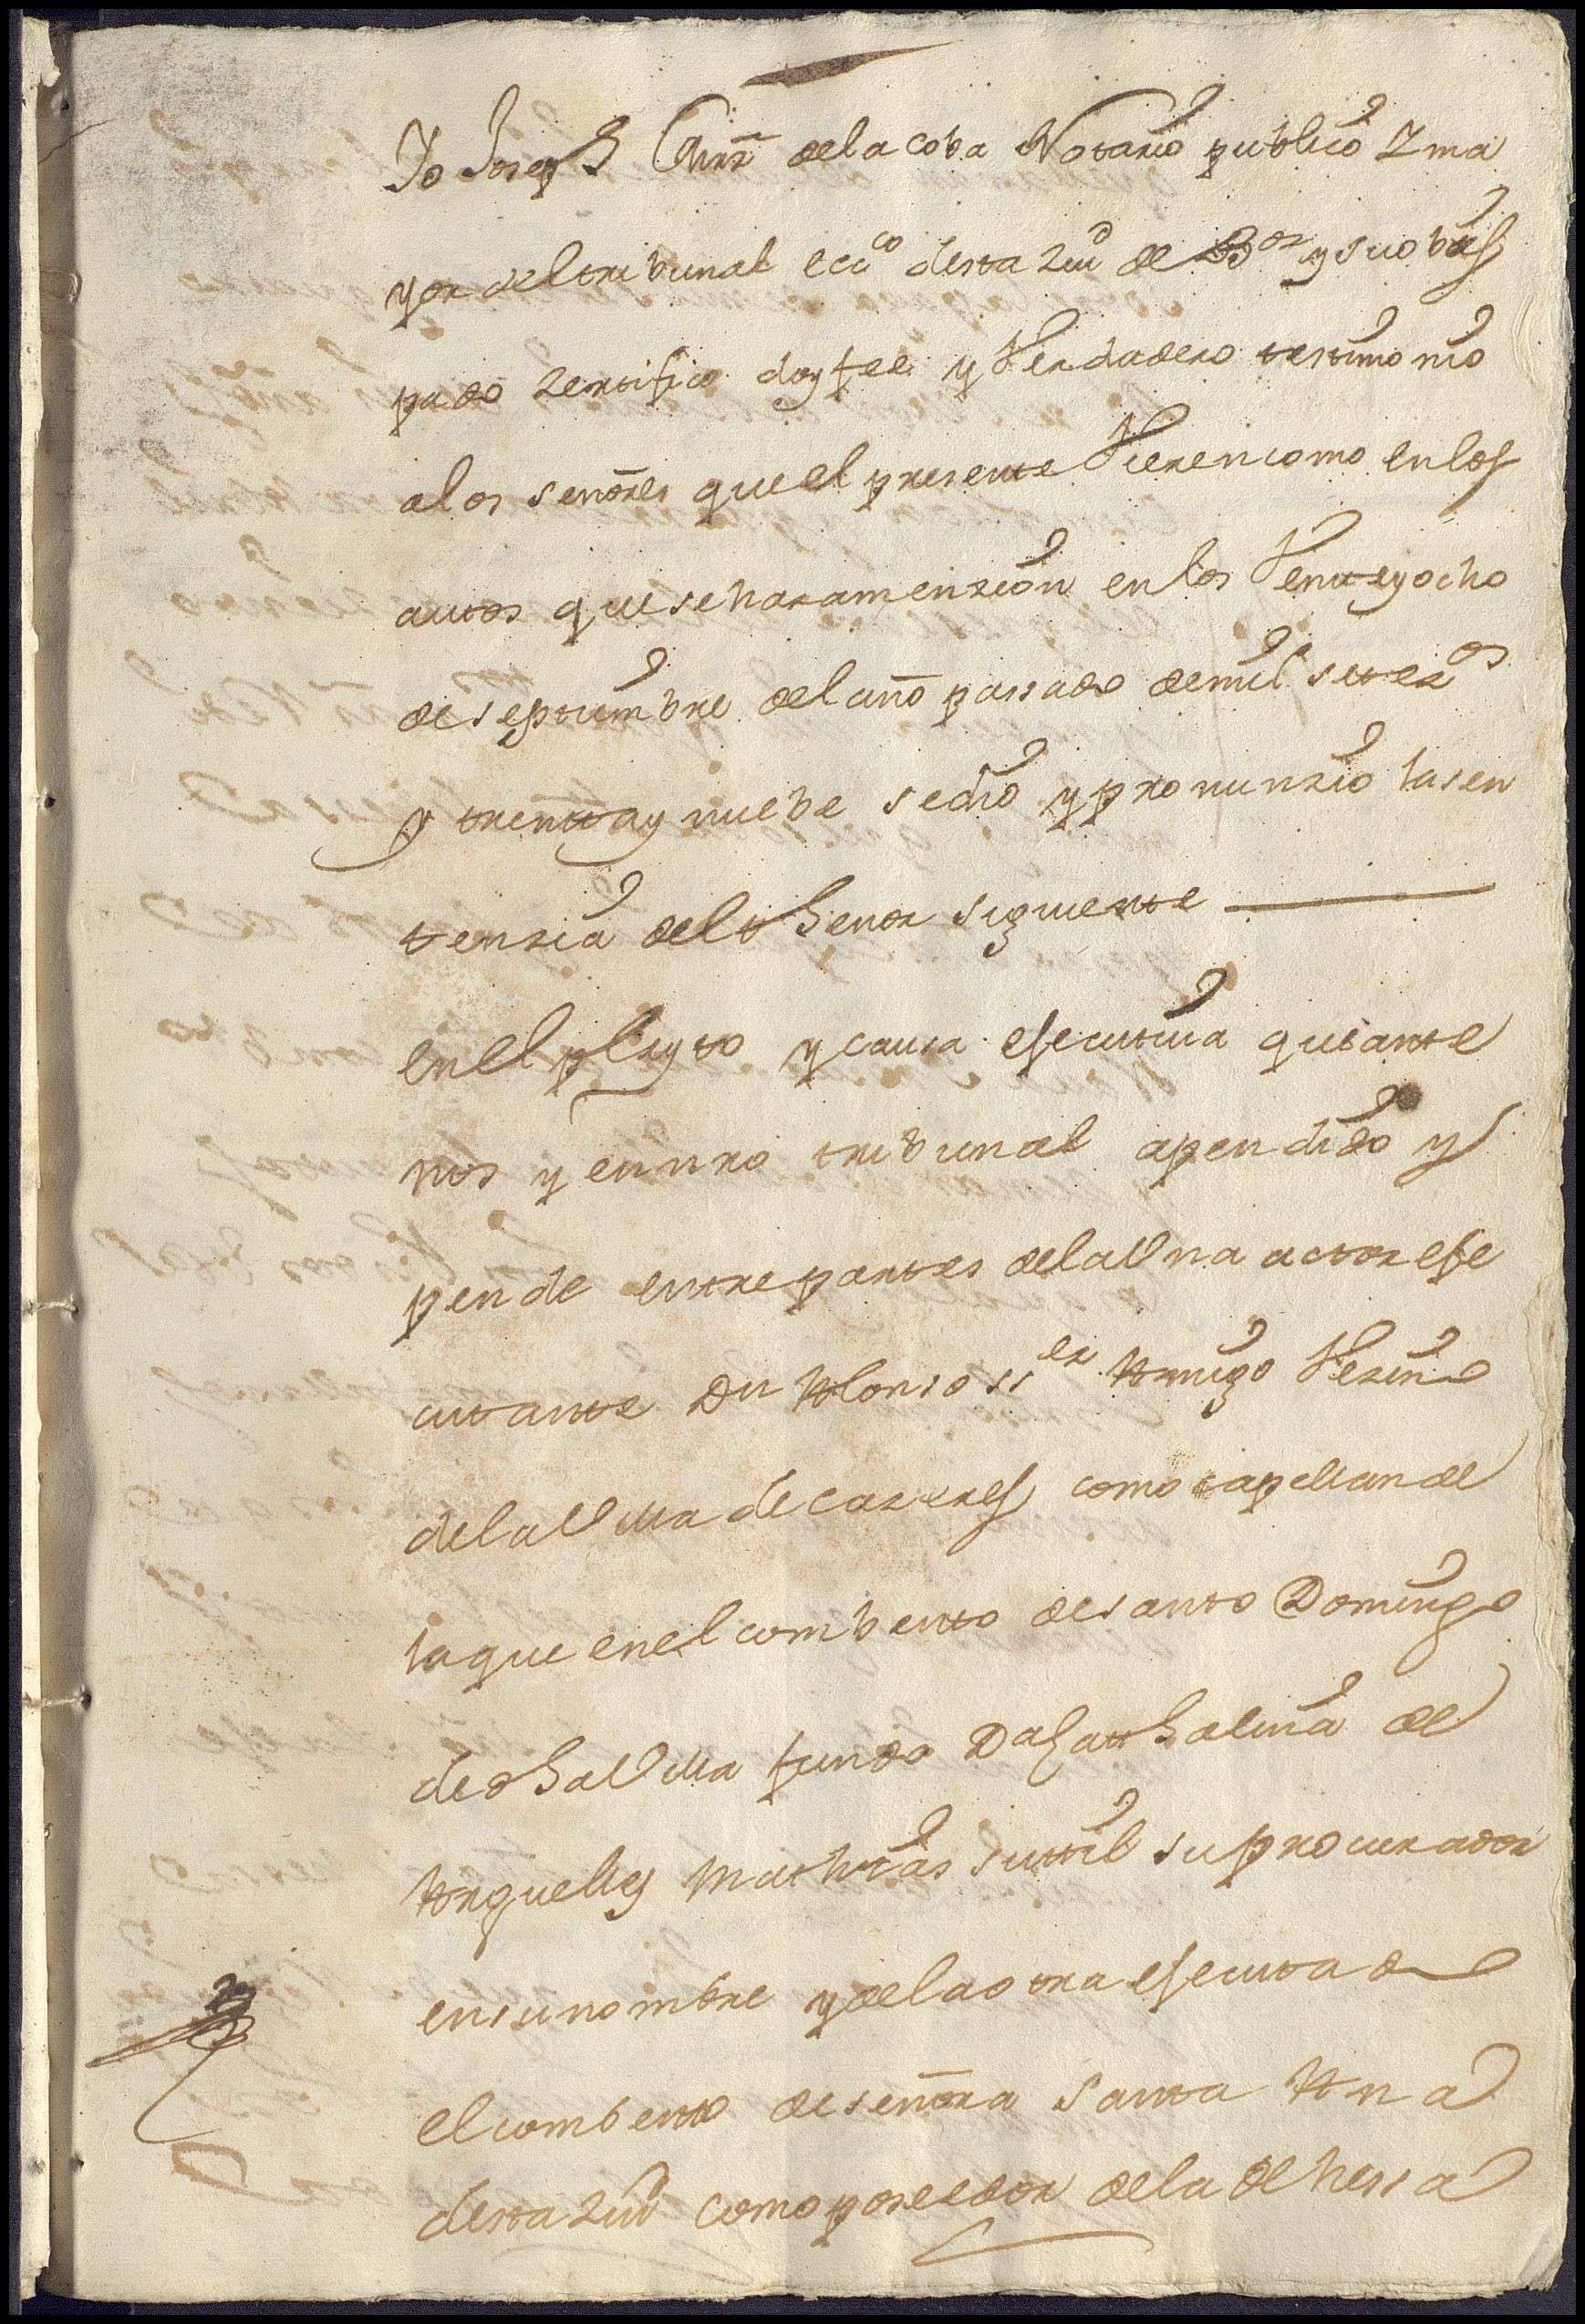 Yo Joseph Gutrr̃ dela coba Notario publico Y ma
yor del tribunal ecc^co desta Ziu^d de B^oz y su obis
pado Zertifico doy fee y Verdadero testimonio
alos señores que el presente Vieren como en los
autos que se hara menzion en los Veinte y ocho
de septiembre del año passado de mil setez^os
y treinta y nuebe se dio y pronunzio la sen
tenzia del thenor siguiente
en el pleyto y causa ejecutiva que ante
nos y en nro tribunal a pendido y
pende entre partes dela Una actor eje
cutante Dn Alonso ss^ez Amigo Vezino
dela Villa de Cazeres como capellan de
la que en el combento de santo Domingo
de dha Villa fundo D^a Cathalina de
Arguelles Mathias Sutil su procurador
en su nombre y dela otra ejecutado
el combento de señora Santa Ana
desta Ziud como poseedor dela dehessa